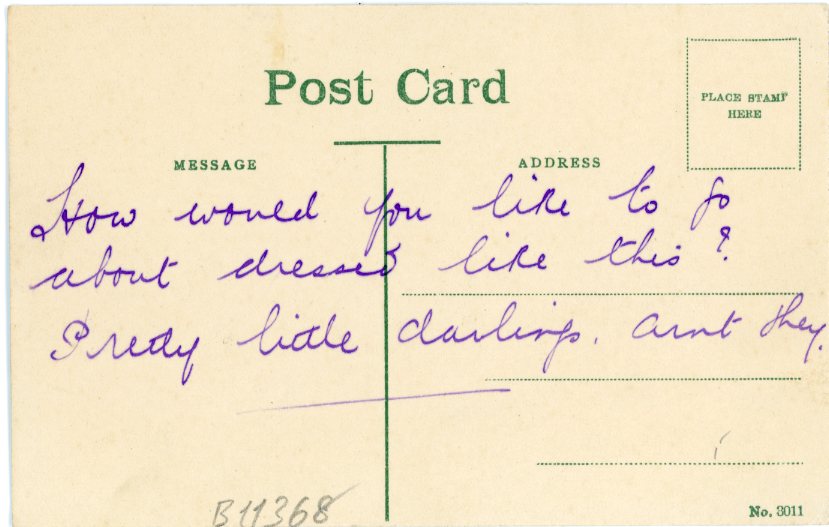 Post Card
PLACE STAMP
HERE
MESSAGE
ADDRESS
How would you like to go
about dressed like this?
Pretty little darlings. arnt they.
B11368
No. 3011